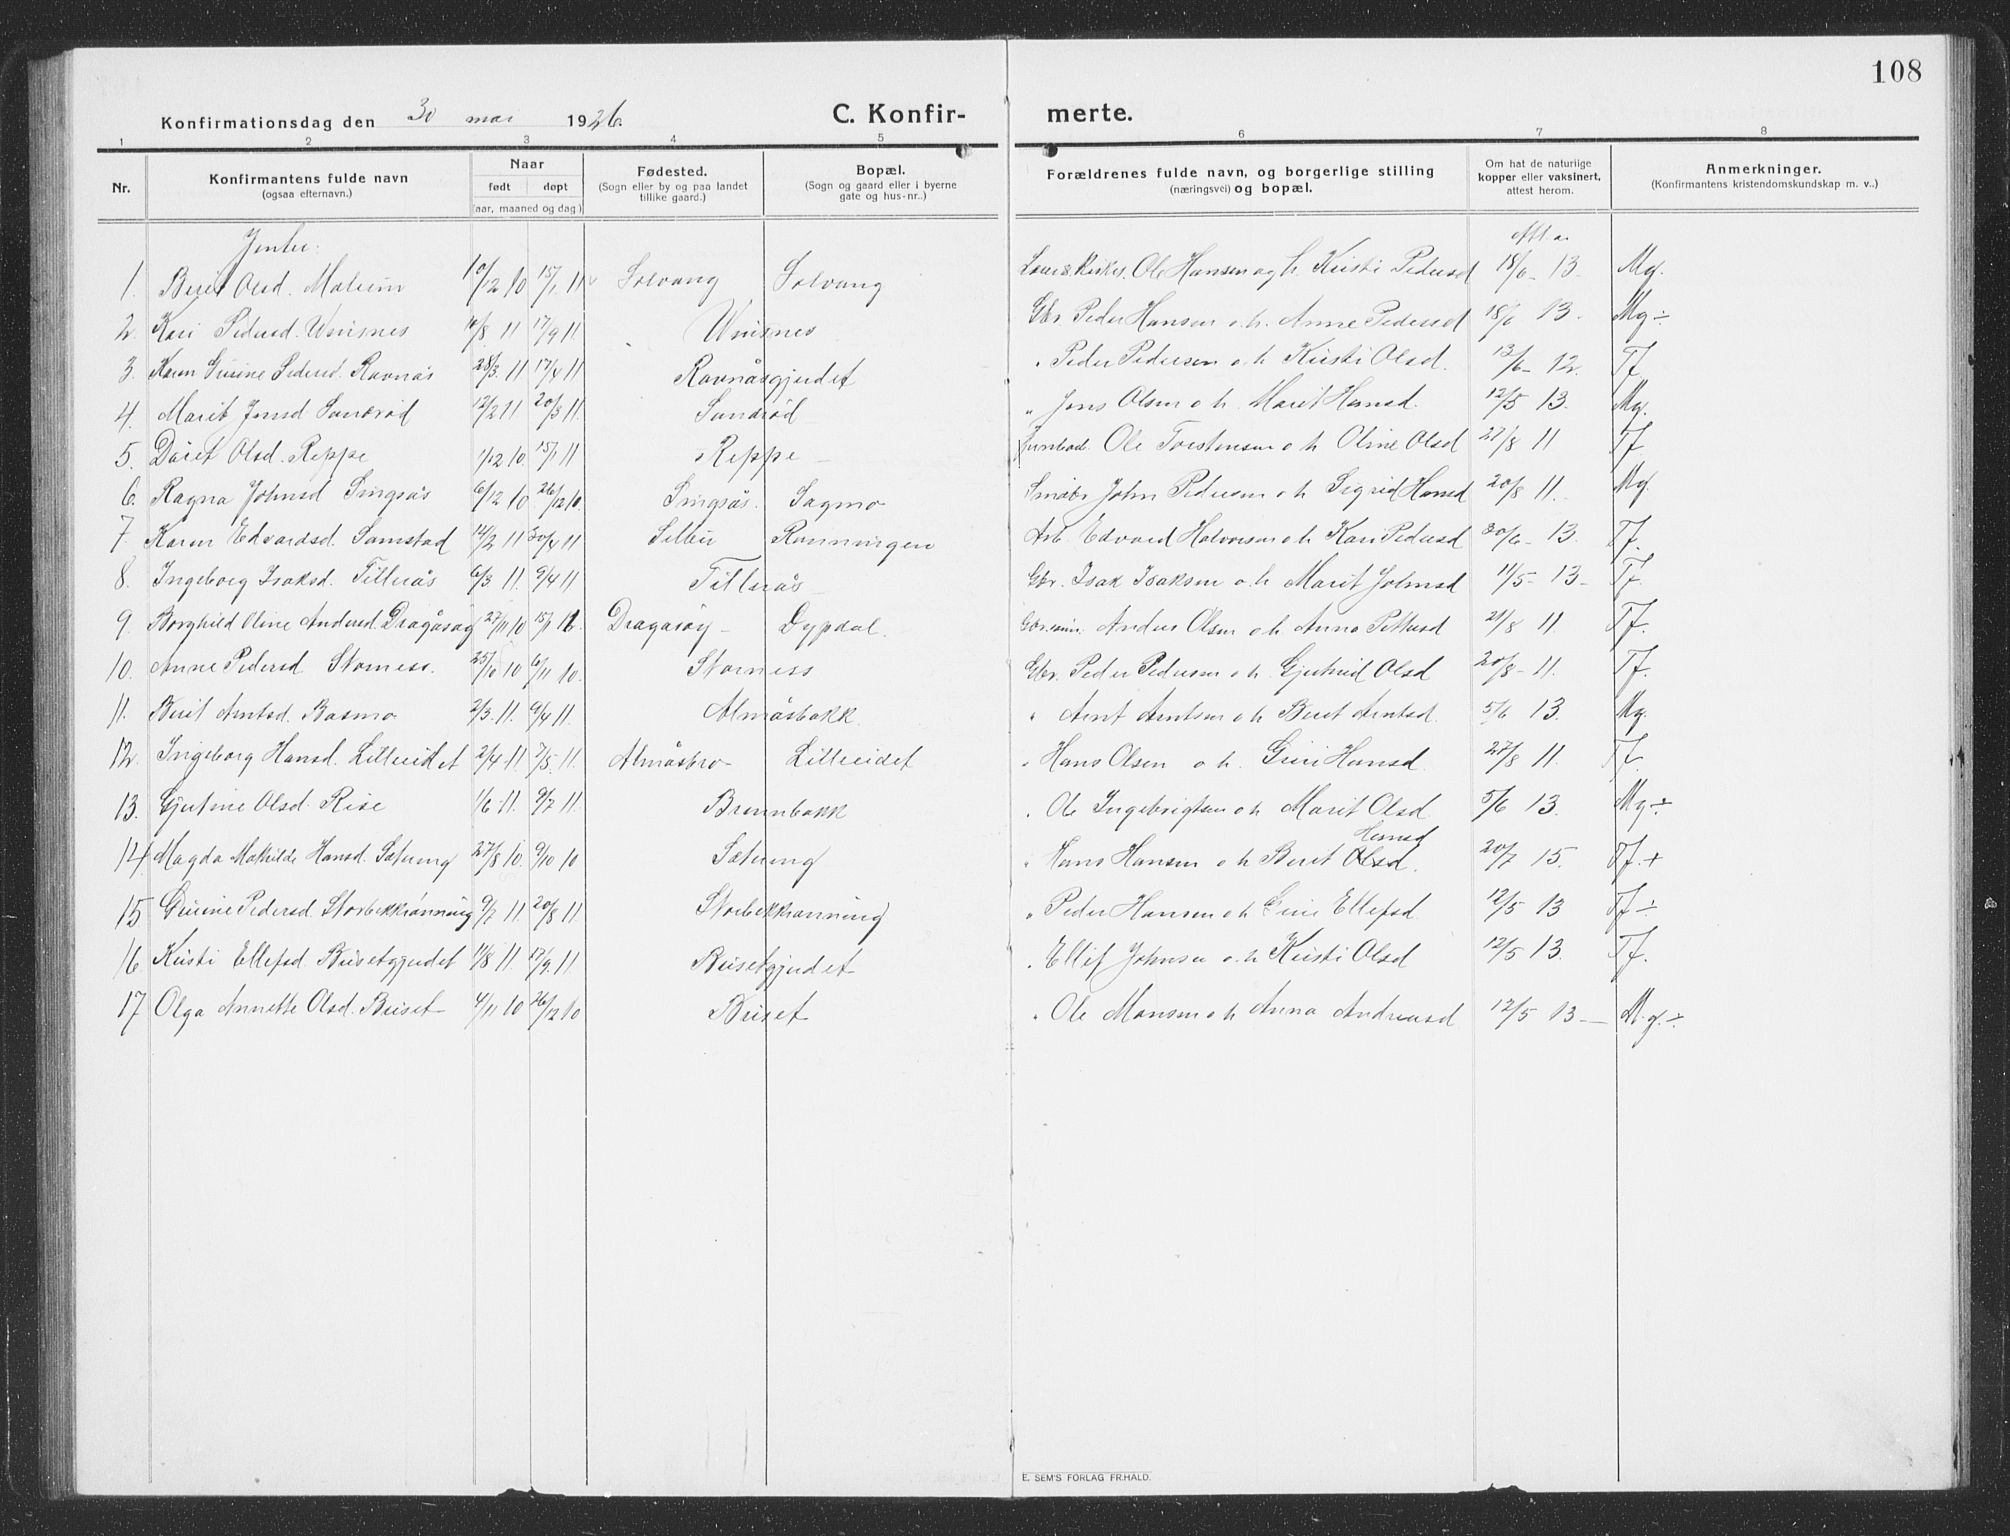 108
Konfirmationsdag den 30 mai 1926.
C. Konfir-
merte.
1 2 3 4 5 6 7 8
Nr.
Konfirmantens fulde navn
(ogsaa efternavn.)
Naar
født døpt
(aar, maaned og dag)
Fødested.
(Sogn eller by og paa landet
tillike gaard.)
Bopæl.
(Sogn og gaard eller i byerne
gate og hus-nr..)
Forældrenes fulde navn, og borgerlige stilling
(næringsvei) og bopæl.
Om hat de naturlige
kopper eller vaksinert,
attest herom.
Anmerkninger.
(Konfirmantens kristendomskundskap m. v..)
Jenter:
1. Berit Olsd. 10/12 10 15/1 11 Solvang Solvang Ole Hansen og h. Kirsti Pedersd 18/6 - 13. Mg.
2. Kari Pedersd. 11 17/9 11. Gbr. Peder Hansen o. h. Anne Pedersd 13. Mg ÷
3. Karen Pedersd. Ravnås 28/3 11 17/4 11 Ravnåsgjerdet " Peder Pedersen o h Kirsti Olsd. 13/6 - 12. Tf
4. Marit Jensd Sandrød 12/2 11 20/3 11. Sandrød " Jens Olsen o h. Marit Hansd. 12/5 13. Mg.
5. Olsd. Reppe 1/12 10 15/1 11 Reppe Ole Torstensen o h Oline Olsd 27/8 11 Tf
6. Ragna Johnsd Singsås 6/12 10 26/12 10. Singsås. Sagmo Småbr John Pedersen o h Sigrid Hansd 20/8 11. Mg.
7. Karen Edvardsd. Samstad 14/2 11 30/4 11 Selbu Rønningen Arb. Edvard Halvorsen o h Kari Pedersd 30/6 - 13. Tf.
8. Ingeborg Isaksd. Tillerås 6/3 11. 9/4 11 Tillerås Gbr. Isak Isaksen o. h Marit Johnsd 11/5 - 13 - Tf.
9. Borghild Oline Andersd Dragåsøy 27/11 10 15/1 11. Dragåsøy - Dypdal. Anders Olsen o h Anna Pettersd 21/8 11. Tf.
10. Anne Pedersd Storness. 25/10 10 6/11 10. Storness Gbr. Peder Pedersen o h. Gjertrud Olsd 20/8 - 11. Tf.
11. Berit Arntsd. Basmo 2/3. 11. 9/4 11. Almåsbakk. " Arnt Arntsen o h Berit Arntsd. 5/6 13. Mg.
12. Ingeborg Hansd. Lilleeidet 2/4 - 11. 7/5. 11. Almåsbro Lilleeidet " Hans Olsen o h. Guri Hansd. 27/8 11. Tf.
13. Gjertine Olsd. Rise 1/6 - 11. 9/7 11. Brennbakk " Ole Ingebrigtsen o h Marit Olsd 5/6 13. Mg. ÷
14. Magda Mathilde Hansd. Sætereng 27/8 10. 9/10 10 Sætereng " Hans Hansen o h Berit Hansd 20/7 15. Tf. +
15 Pedersd. Storbekkrønning 9/7 11. 20/8 11 Storbekkrønning " Peder Hansen o h Ellefsd. 12/5 13 Tf ÷
16. Kirsti Ellefsd. 11. 17/9. 11. " Ellef Johnsen o. h Kirsti Olsd 12/5 13. Tf.
17 Olga Annette Olsd. 4/11 10 26/12 10 " Ole Monsen o h Anna Andreasd 12/5 13 - Mg. ÷
E. SEM'S FORLAG FR.HALD.